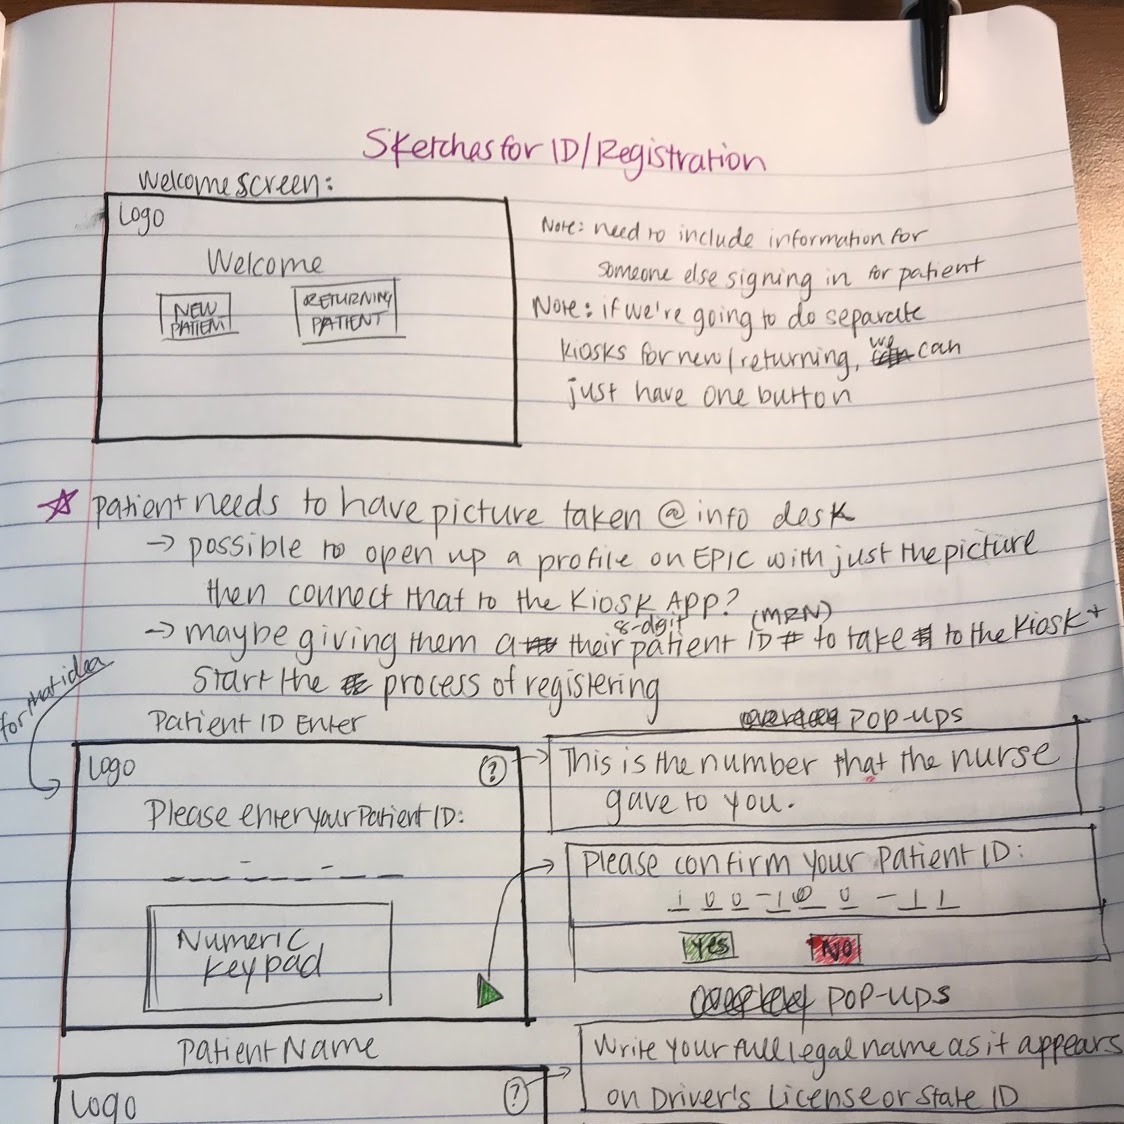 Sketches for ID/Registration
Welcome screen:
Logo
Welcome
NEW PATIENT
RETURNING PATIENT
Note: need to include information for
someone else signing in for patient
Note: if we're going to do separate
kiosks for new/returning, we can
just have one button
☆ patient needs to have picture taken @ info desk
→ possible to open up a profile on EPIC with just the picture
then connect that to the Kiosk App?
→ maybe giving them their 8-digit patient ID # (MRN) to take to the kiosk +
start the process of registering
for that idea
Patient ID Enter
Logo
?
Please enter your Patient ID:
Numeric
Keypad
POP-UPS
This is the number that the nurse
gave to you.
Please confirm your Patient ID:
1 0 0 - 1 0 0 - 1 1
Yes
No
POP-UPS
Patient Name
Logo
?
Write your full legal name as it appears
on Driver's License or State ID